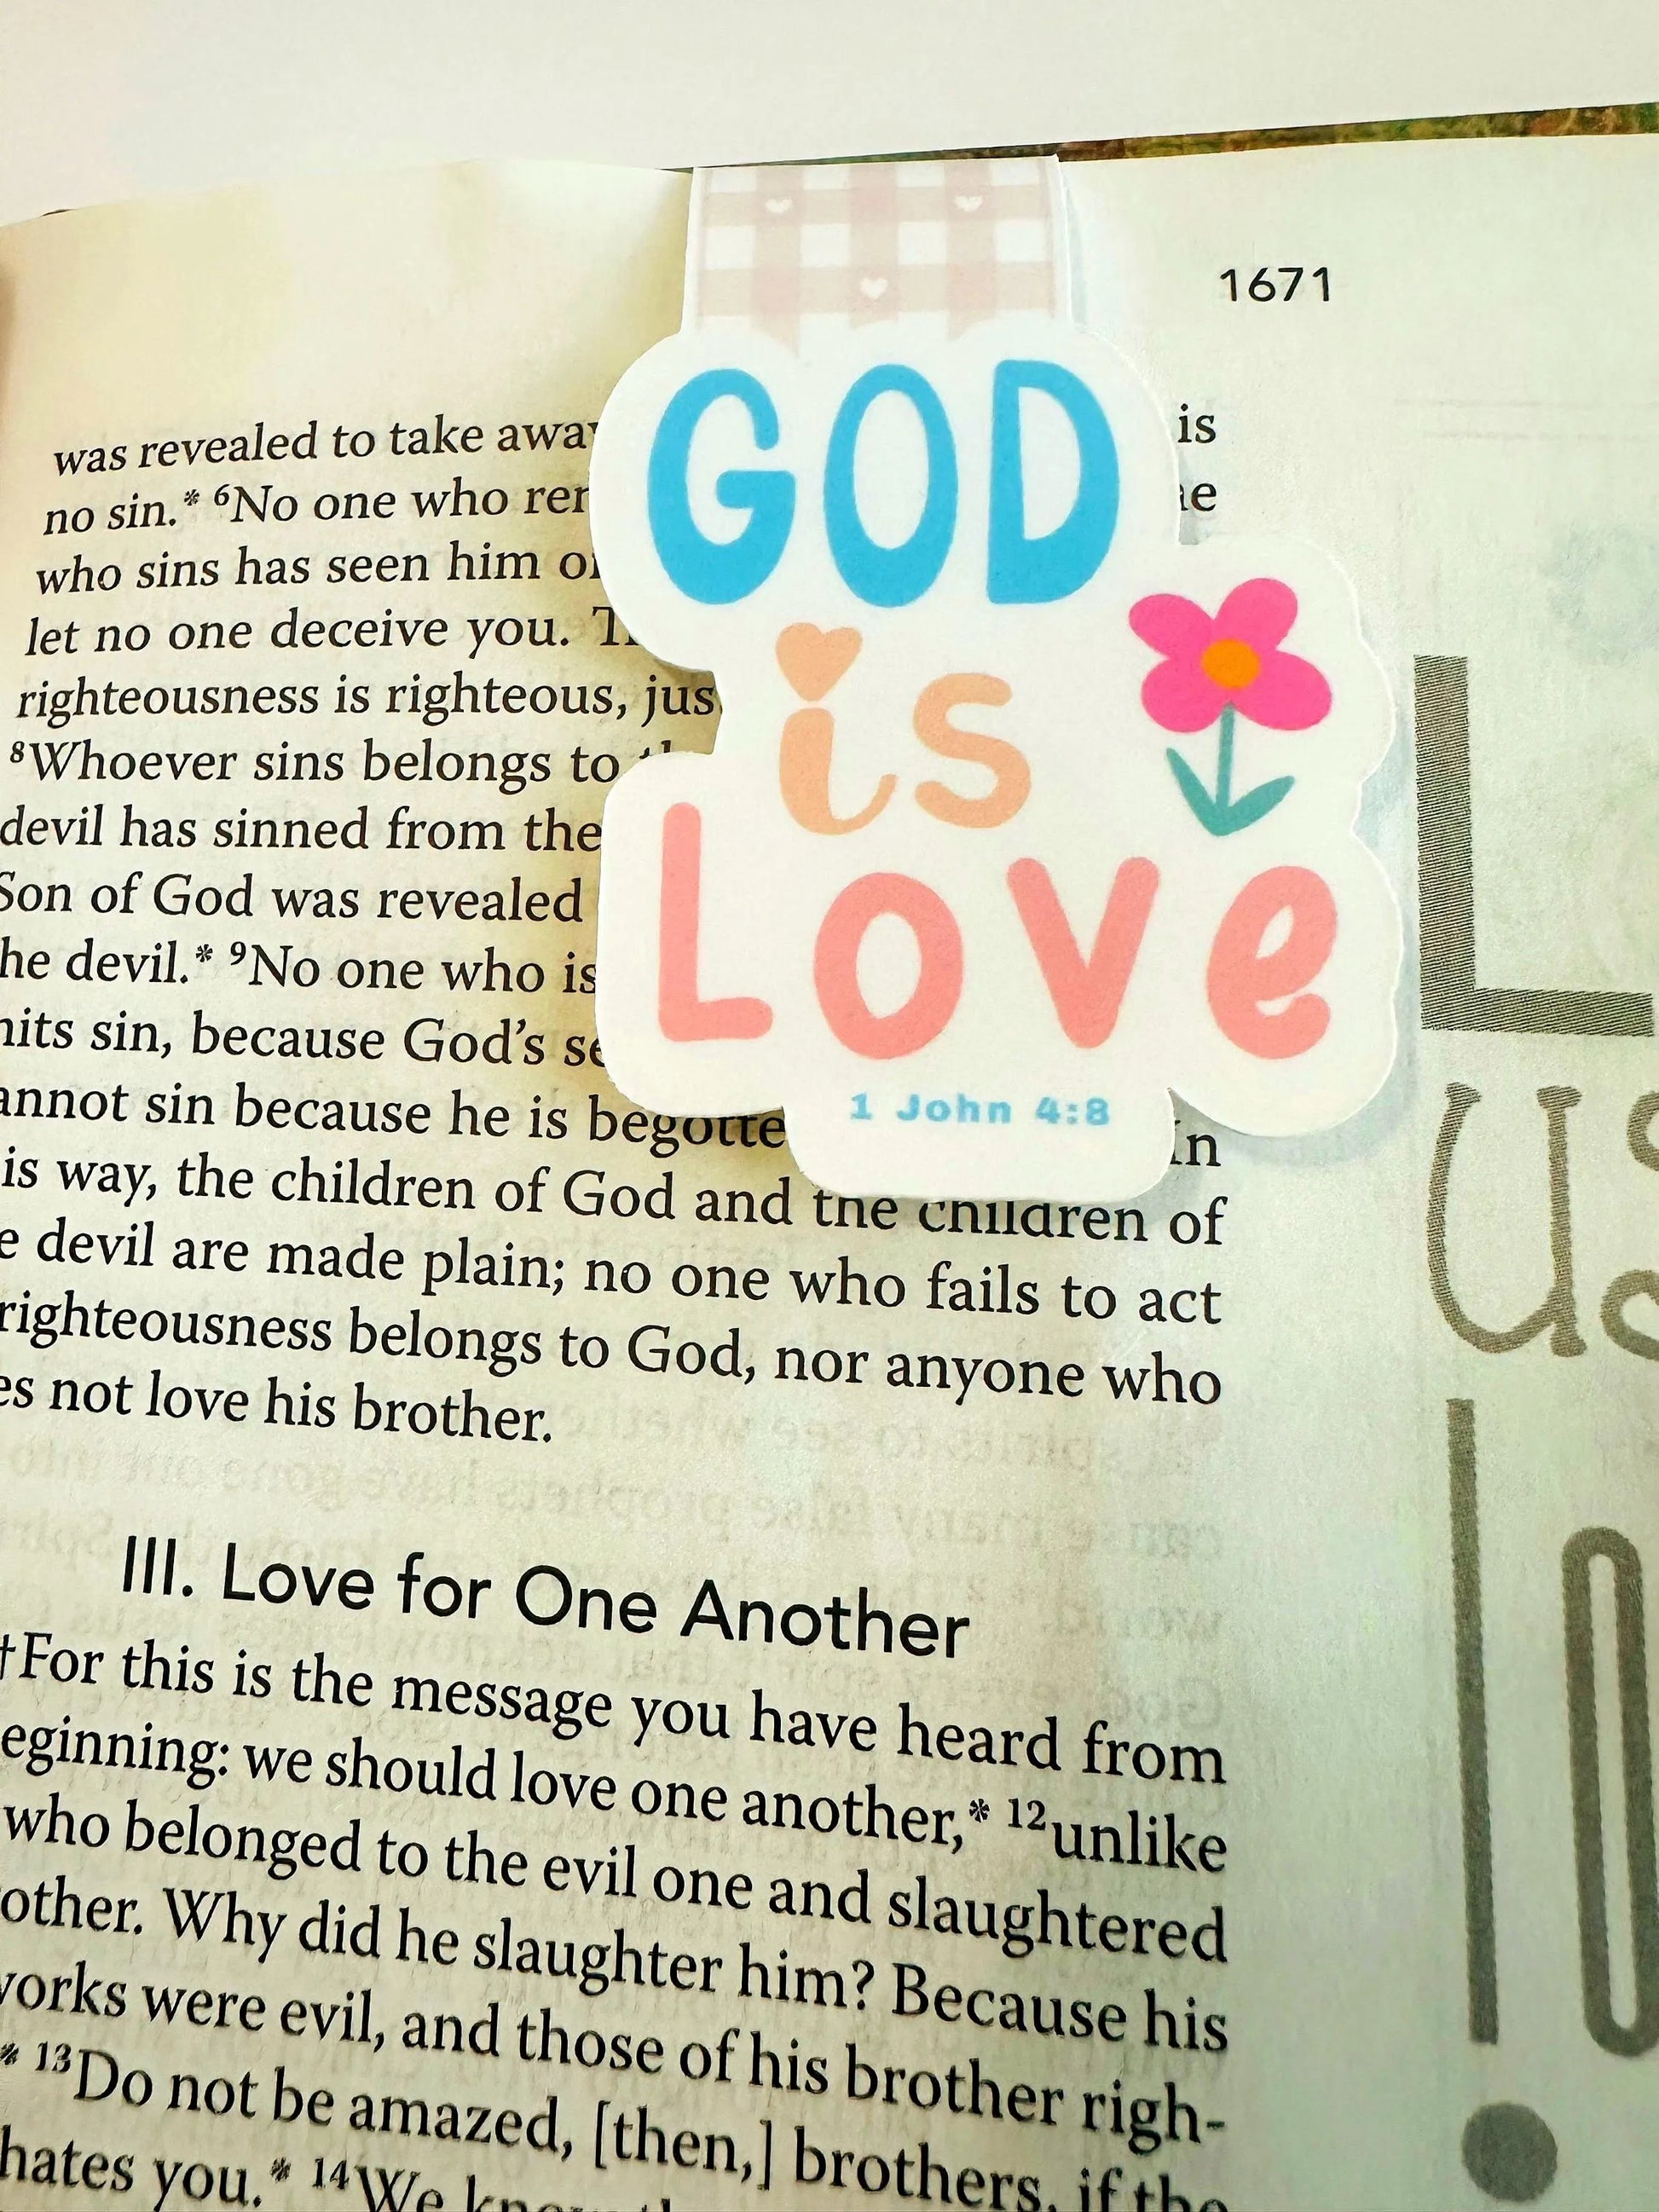 1671
GOD
is
Love
1 John 4:8
was revealed to take is
no sin.* ⁶No one who
who sins has seen him
let no one deceive you.
righteousness is righteous,
⁸Whoever sins belongs to
devil has sinned from the
Son of God was revealed
he devil.* ⁹No one who is
sin, because God's
because he is In
is way, the children of God and the children of
devil are made plain; no one who fails to act
righteousness belongs to God, nor anyone who
not love his brother.
III. Love for One Another
†For this is the message you have heard from
eginning: we should love one another,* ¹²unlike
who belonged to the evil one and slaughtered
other. Why did he slaughter him? Because his
works were evil, and those of his brother righ-
* ¹³Do not be amazed, [then,] brothers, if the
hates you.* ¹⁴We
L
us